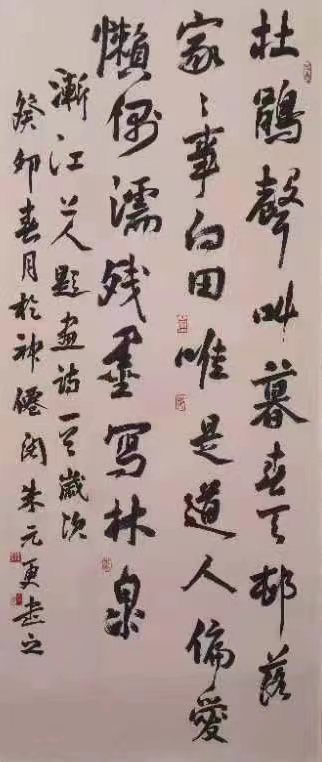 杜鵑聲叫暮春天邨落
家々事向田唯是道人偏愛
懶偶濡残墨寫林泉
漸江上人題畫詩一首歲次
癸卯春月於神僊閣朱元更書之